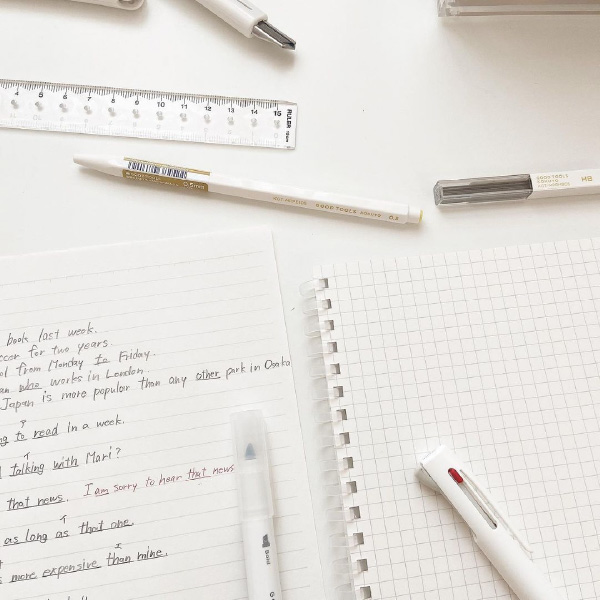 4 5 6 7 8 9 10 11 12 13 14 15
RULER
0.5mm
GOOD TOOLS
0.5
HB
book last week.
for two years.
from Monday to Friday.
who works in London.
Japan is more popular than any other park in Osaka
to read in a week.
talking with Mari?
that news. I am sorry to hear that news
as long as that one.
more expensive than mine.